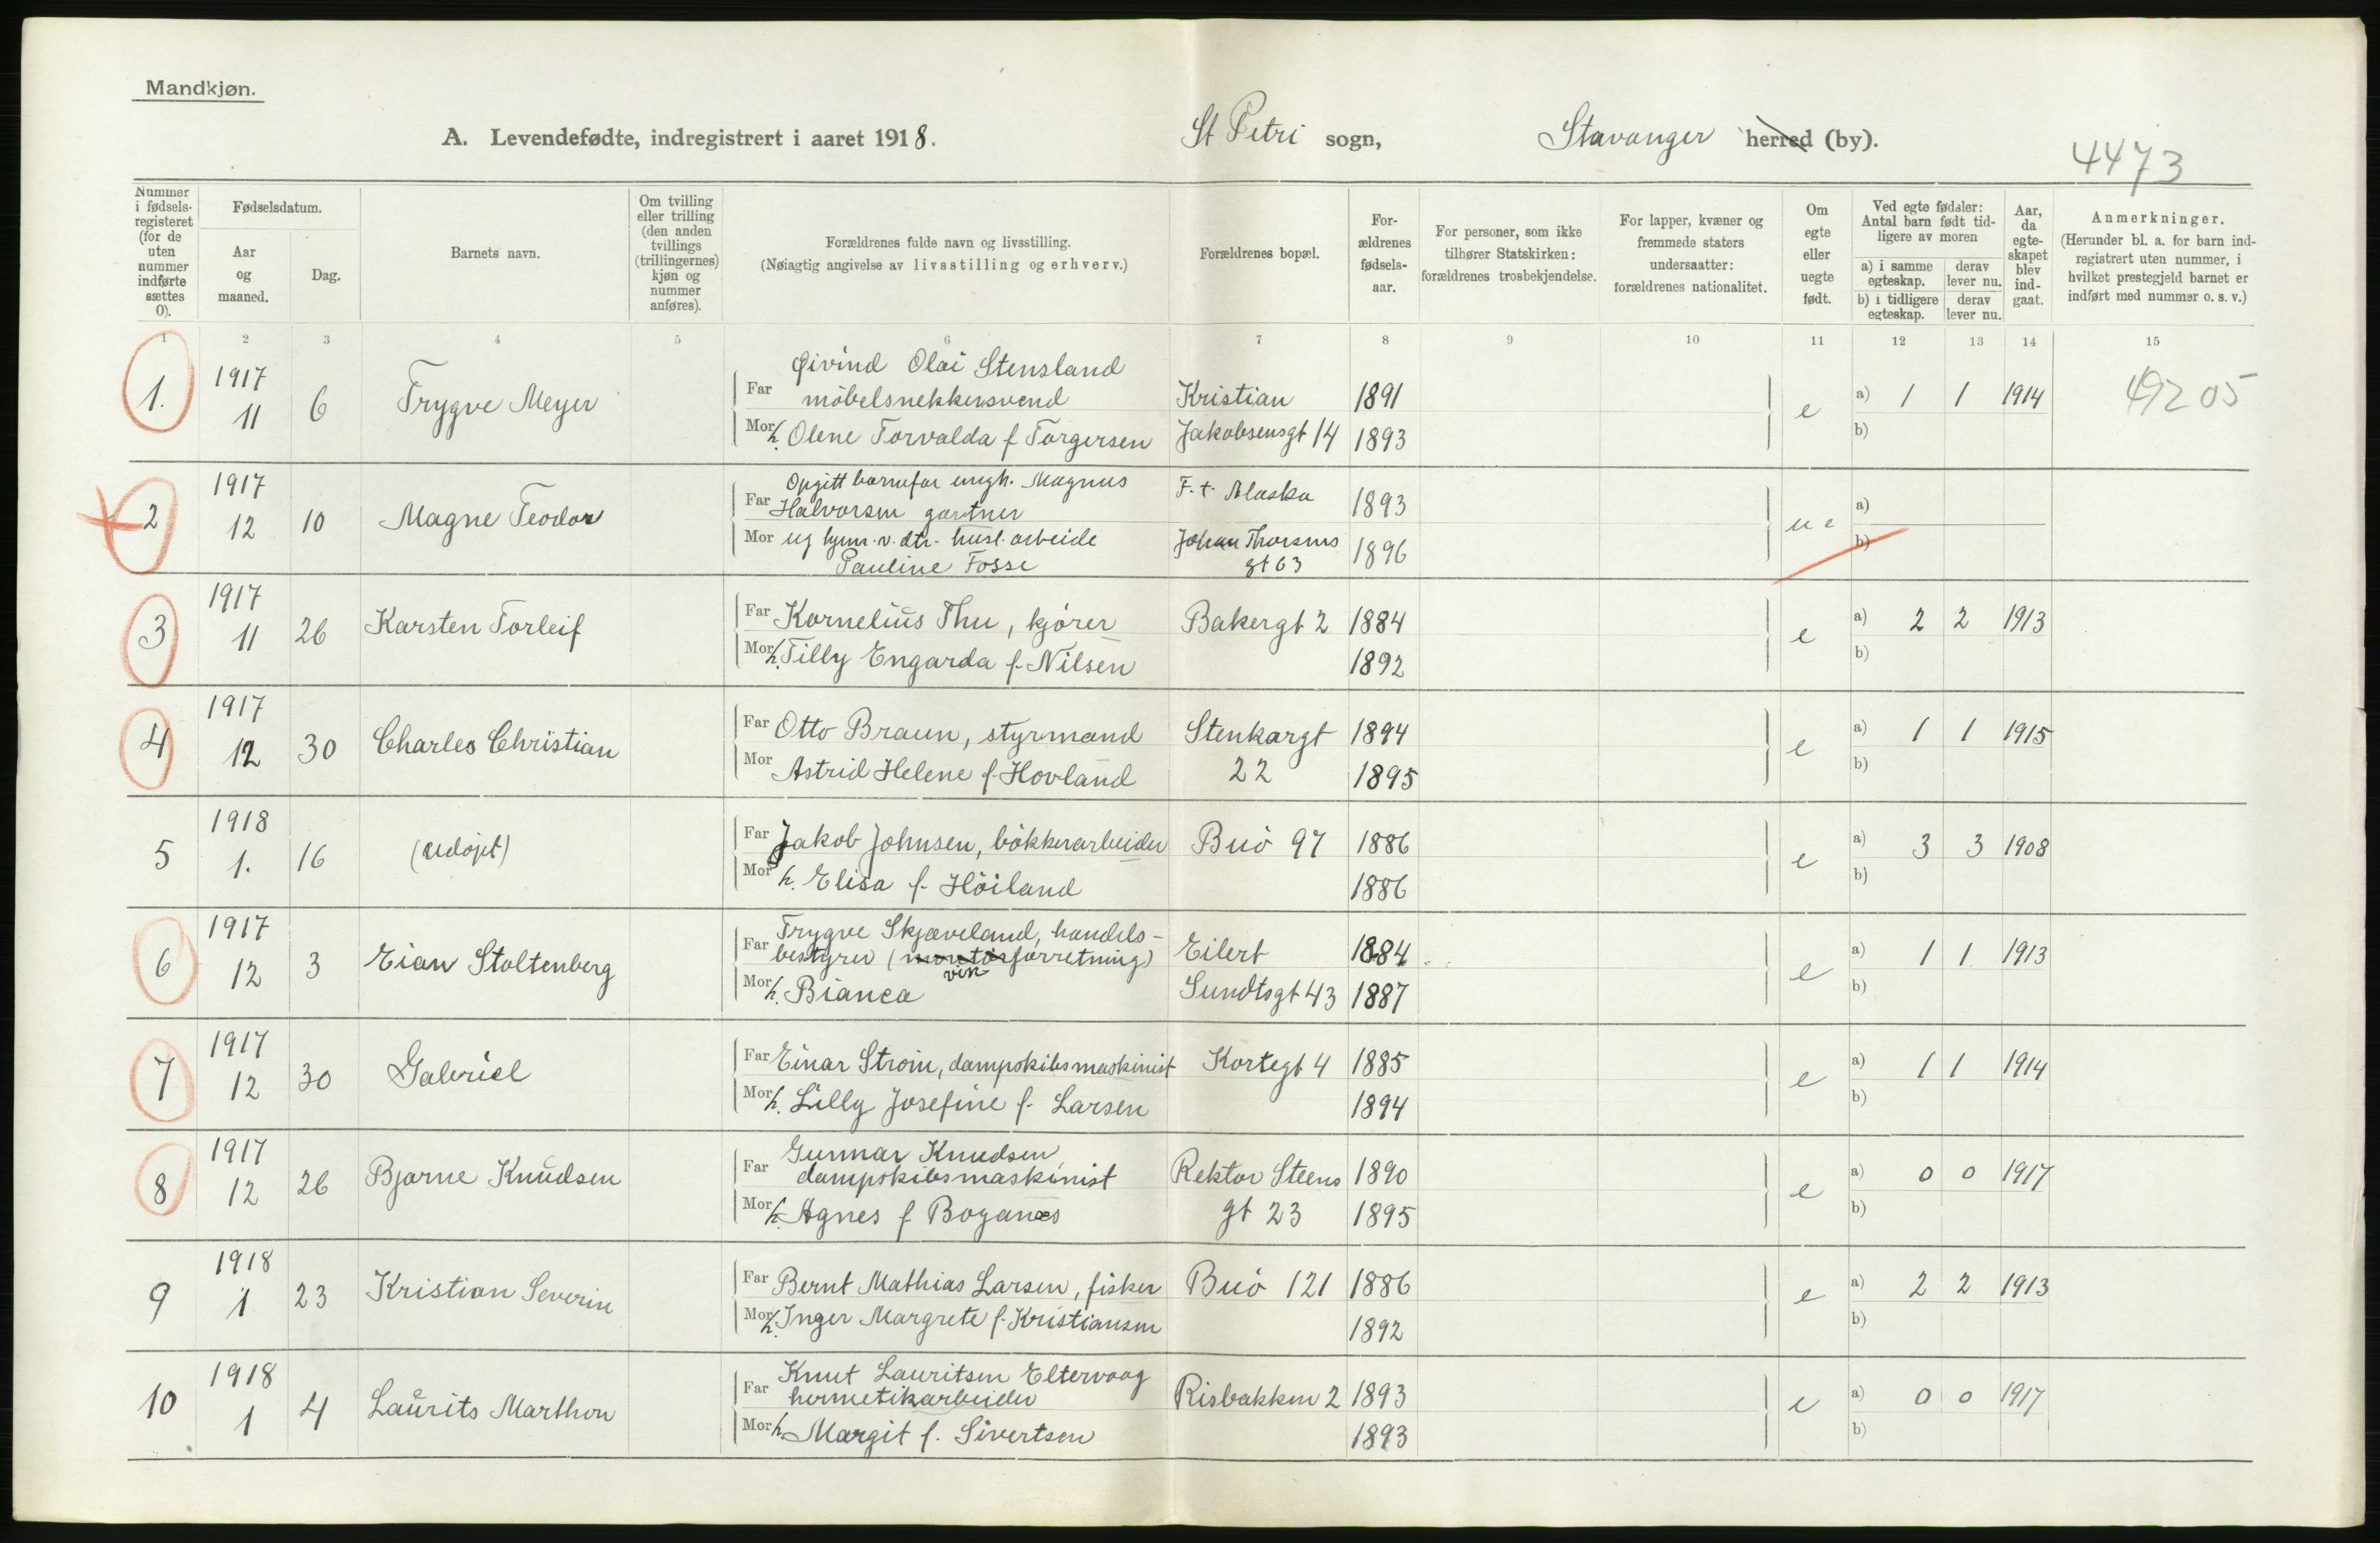 Mandkjøn.
A. Levendefødte, indregistrert i aaret 1918.
St Petri sogn,
Stavanger herred (by).
4473
Nummer i fødsels-registeret (for de uten nummer indførte sættes 0).
Fødselsdatum.
Aar og maaned.
Dag.
Barnets navn.
Om tvilling eller trilling (den anden tvillings (trillingernes) kjøn og nummer anføres).
Forældrenes fulde navn og livsstilling.
(Nøiagtig angivelse av livsstilling og erhverv.)
Forældrenes bopæl.
For-ældrenes fødsels-aar.
For personer, som ikke tilhører Statskirken: forældrenes trosbekjendelse.
For lapper, kvæner og fremmede staters undersaatter: forældrenes nationalitet.
Om egte eller uegte født.
Ved egte fødsler: Antal barn født tid-ligere av moren
a) i samme egteskap.
derav lever nu.
b) i tidligere egteskap.
derav lever nu.
Aar, da egte-skapet blev ind-gaat.
Anmerkninger.
(Herunder bl. a. for barn ind-registrert uten nummer, i hvilket prestegjeld barnet er indført med nummer o. s. v.)
1 2 3 4 5 6 7 8 9 10 11 12 13 14 15
Øivind Olai Stensland
1. 1917 11 6 Trygve Meyer Far møbelsnekkersvend Kristian 1891 e a) 1 1 1914 49205
Mor h. Olene Torvalda f. Torgersen Jakobsensgt 14 1893 b)
Opgitt barnefar ungk. Magnus
2 1917 12 10 Magne Teodor Far Halvorsen gartner F. t. Alaska 1893 u e a)
Mor ug hjem. v. dtr. husl. arbeide Johan Thorsens 1896 b)
Pauline Fosse gt 63
3 1917 11 26 Karsten Torleif Far Kornelius Thu, kjører Bakergt 2 1884 e a) 2 2 1913
Mor h. Tilly Engarda f. Nilsen 1892 b)
4 1917 12 30 Charles Christian Far Otto Braun, styrmand Stenkargt 1894 e a) 1 1 1915
Mor Astrid Helene f. Hovland 22 1895 b)
5 1918 1. 16 (udøpt) Far Jakob Johnsen, bøkkerarbeider Buø 97 1886 e a) 3 3 1908
Mor h. Elisa f. Høiland 1886 b)
Trygve Skjæveland, handels-
6 1917 12 3 Eian Stoltenberg Far bestyrer (forretning) Eilert 1884 e a) 1 1 1913
Mor h. Bianca Sundtsgt 43 1887 b)
7 1917 12 30 Gabriel Far Einar Strøm, dampskibsmaskinist Kortegt 4 1885 e a) 1 1 1914
Mor h. Lilly Josefine f. Larsen 1894 b)
Gunnar Knudsen
8 1917 12 26 Bjarne Knudsen Far dampskibsmaskinist Rektor Steens 1890 e a) 0 0 1917
Mor h. Agnes f Boganæs gt 23 1895 b)
9 1918 1 23 Kristian Severin Far Bernt Mathias Larsen, fisker Buø 121 1886 e a) 2 2 1913
Mor h. Inger Margrete f. Kristiansen 1892 b)
Knut Lauritsen Eltervaag
10 1918 1 4 Laurits Marthon Far hermetikarbeider Risbakken 2 1893 e a) 0 0 1917
Mor h. Margit f. Sivertsen 1893 b)